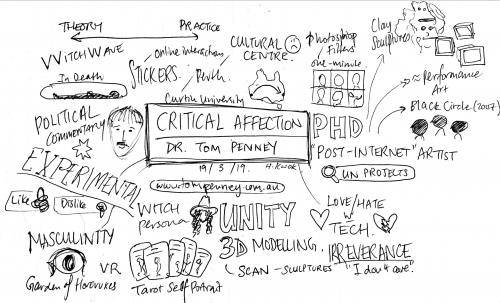 THEORY
PRACTICE
WITCHWAVE
In Death
STICKERS.
online interactions
Perth.
Curtin University
CULTURAL
CENTRE.
Photoshop
Filters
one-minute
Clay
Sculptures
≈ Performance
Art
Black Circle (2007)
POLITICAL
COMMENTARY
CRITICAL AFFECTION
DR. TOM PENNEY
19/3/19.
H.KWOK.
www.tompenney.com.au
PHD
"POST-INTERNET" ARTIST
UN PROJECTS
EXPERIMENTAL
Like
Dislike
WITCH
persona
UNITY
3D MODELLING.
SCAN-SCULPTURES
LOVE/HATE
w
TECH.
IRREVERANCE
"I don't care".
MASCULINITY
VR
Garden of Horovurs
Tarot Self Portrait